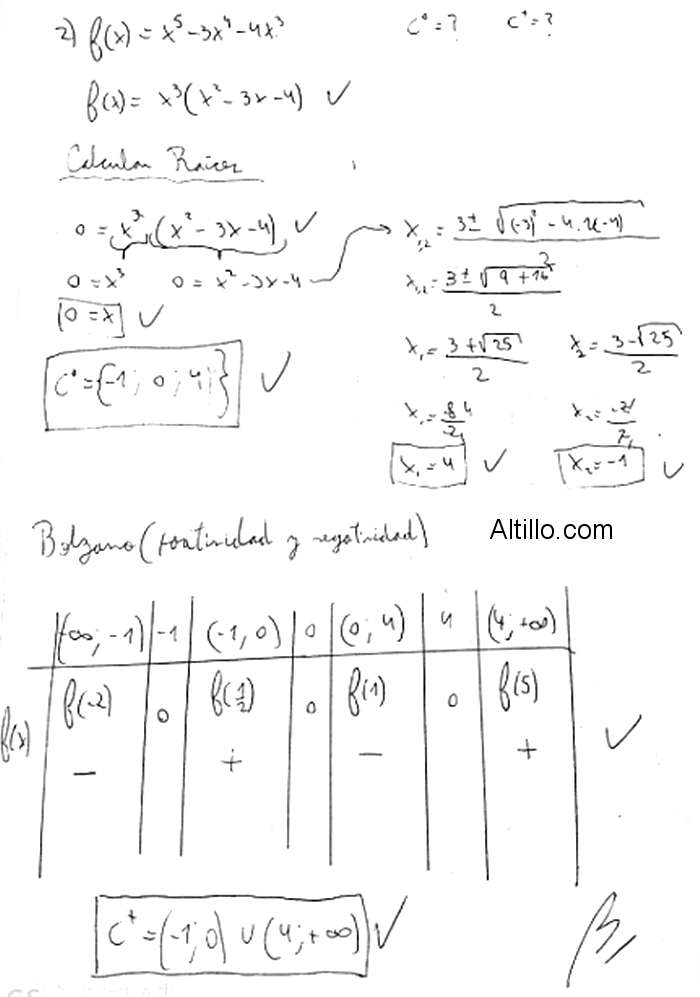 2) f(x) = x⁵ - 3x⁴ - 4x³ C⁰ = ? C⁺ = ?
f(x) = x³(x² - 3x - 4) ✓
Calcular Raíces
0 = x³ (x² - 3x - 4) ✓
0 = x³ 0 = x² - 3x - 4
0 = x ✓
C⁰ = {-1; 0; 4;} ✓
x₁,₂ = 3 ± √(-3)² - 4.1(-4)
x₁,₂ = 3 ± √9 + 16
2
x₁ = 3 + √25 x₂ = 3 - √25
2 2
x₁ = 8 4 x₂ = -2
2 2
x₁ = 4 ✓ x₂ = -1 ✓
Bolzano (positividad y negatividad)
Altillo.com
(-∞; -1) -1 (-1, 0) 0 (0; 4) 4 (4; +∞)
f(x) f(-2) 0 f(1/2) 0 f(1) 0 f(5) ✓
- + - +
C⁺ = (-1; 0) ∪ (4; +∞) ✓